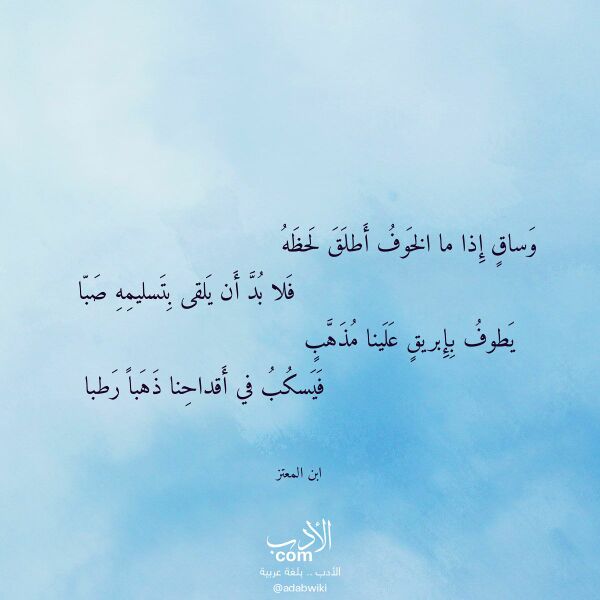 وَساقٍ إِذا ما الخَوفُ أَطلَقَ لَحظَهُ
فَلا بُدَّ أَن يَلقى بِتَسليمِهِ صَبّا
يَطوفُ بِإِبريقٍ عَلَينا مُذَهَّبٍ
فَيَسكُبُ في أَقداحِنا ذَهَباً رَطبا
ابن المعتز
الأدب
com
الأدب .. بلغة عربية
@adabwiki